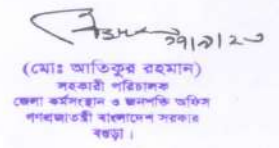 ২৭/৯/২৩
(মোঃ আতিকুর রহমান)
সহকারী পরিচালক
জেলা কর্মসংস্থান ও জনশক্তি অফিস
গণপ্রজাতন্ত্রী বাংলাদেশ সরকার
বগুড়া।